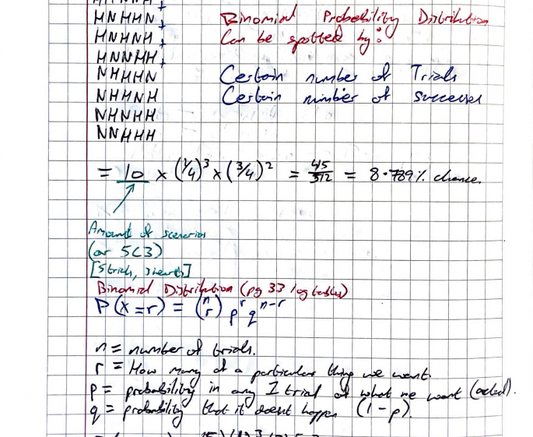 HHNNH
HNHHN
HNHNH
HNNHH
NHHHN
NHHNH
NHNHH
NNHHH
Binomial Probability Distribution
Can be spotted by:
Certain number of Trials
Certain number of successes
= 10 x (1/4)^3 x (3/4)^2 = 45/512 = 8.789% chance.
Amount of scenarios
(or 5C3)
[5 trials, 3 hearts]
Binomial Distribution (pg 33 log tables)
P(x=r) = (n r) p^r q^n-r
n = number of trials.
r = How many of a particular thing we want.
p = probability in any 1 trial of what we want
q = probability that it doesnt happen (1-p).